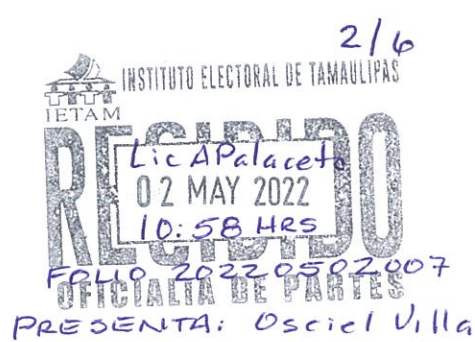 2/6
INSTITUTO ELECTORAL DE TAMAULIPAS
IETAM
RECIBIDO
Lic APalaceto
02 MAY 2022
10:58 HRS
FOLIO 20220502007
OFICIALIA DE PARTES
PRESENTA: Osciel Villa